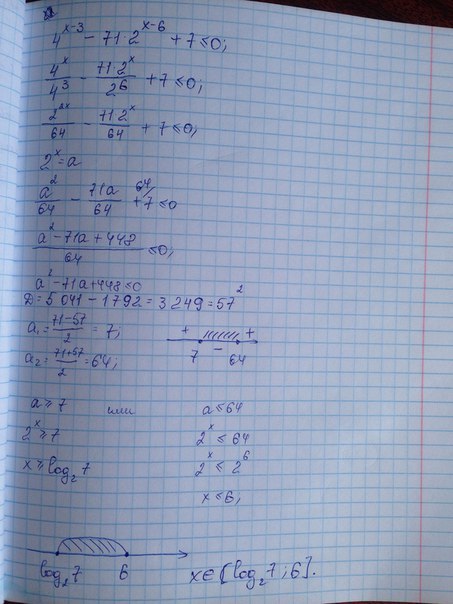 4^(x-3) - 71·2^(x-6) + 7 ≤ 0;
4^x/4^3 - 71·2^x/2^6 + 7 ≤ 0;
2^(2x)/64 - 71·2^x/64 + 7 ≤ 0;
2^x = a
a^2/64 - 71a/64 + 7^(64/) ≤ 0
(a^2 - 71a + 448)/64 ≤ 0;
a^2 - 71a + 448 ≤ 0
D = 5041 - 1792 = 3249 = 57^2
a₁ = (71-57)/2 = 7;
+ - +
7 64
a₂ = (71+57)/2 = 64;
a ≥ 7 или a ≤ 64
2^x ≥ 7 2^x ≤ 64
x ≥ log₂7 2^x ≤ 2^6
x ≤ 6;
log₂7 6 x ∈ [log₂7; 6].